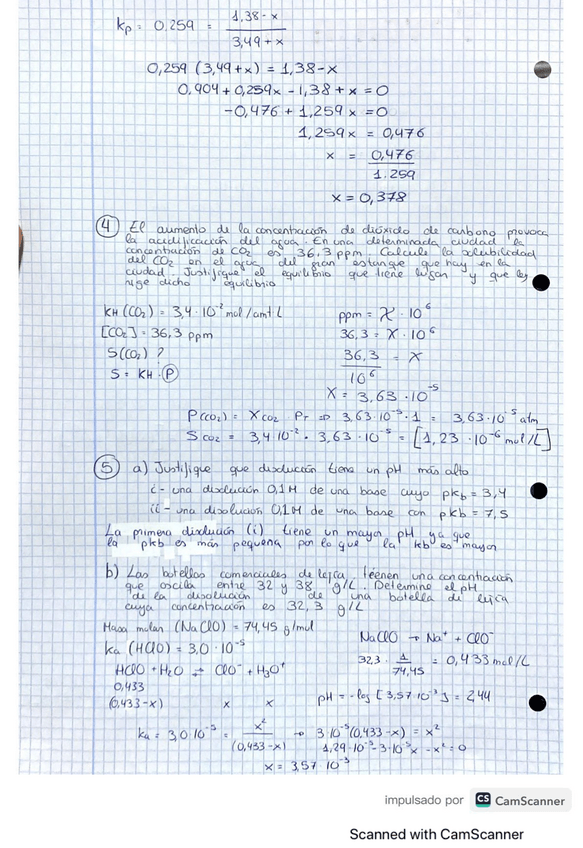 kp = 0.259 = 1,38 - x / 3,49 + x
0,259 (3,49+x) = 1,38-x
0.904 + 0,259x - 1,38 + x = 0
-0,476 + 1,259 x = 0
1,259x = 0,476
x = 0,476 / 1.259
x = 0,378
④ El aumento de la concentración de dióxido de carbono provoca
la acidificación del agua. En una determinada ciudad la
concentración de CO2 es 36,3 ppm. Calcule la solubilidad
del CO2 en el agua del gran estanque que hay en la
ciudad. Justifique el equilibrio que tiene lugar y que ley
rige dicho equilibrio
KH (CO2) = 3,4 · 10⁻² mol/atm L
[CO2] = 36,3 ppm
S(CO2) ?
S = KH · P
ppm = X · 10⁶
36,3 = X · 10⁶
36,3 / 10⁶ = X
X = 3,63 · 10⁻⁵
P(CO2) = XCO2 · PT => 3,63 · 10⁻⁵ · 1 = 3,63 · 10⁻⁵ atm
SCO2 = 3,4 10⁻² · 3,63 · 10⁻⁵ = [1,23 · 10⁻⁶ mol/L]
⑤ a) Justifique que disolución tiene un pH más alto
i - una disolución 0,1M de una base cuyo pKb = 3,4
ii - una disolución 0,1M de una base con pKb = 7,5
La primera disolución (i) tiene un mayor pH ya que
la pkb es más pequeña por lo que la kb es mayor
b) Las botellas comerciales de lejía, tienen una concentración
que oscila entre 32 y 38 g/L. Determine el pH
de la disolución de una botella de lejía
cuya concentración es 32,3 g/L
Masa molar (NaClO) = 74,45 g/mol
ka (HClO) = 3,0 · 10⁻⁵
HClO + H2O ⇌ ClO⁻ + H3O⁺
0,433
(0,433-x) x x
NaClO → Na⁺ + ClO⁻
32,3 · 1 / 74,45 = 0,433 mol/L
pH = -log [3,57 · 10⁻³] = 2,44
ka = 3,0 · 10⁻⁵ = x² / (0,433-x) → 3 · 10⁻⁵ (0,433-x) = x²
1,29 · 10⁻⁵ - 3 · 10⁻⁵x - x² = 0
x = 3,57 · 10⁻³
impulsado por CS CamScanner
Scanned with CamScanner